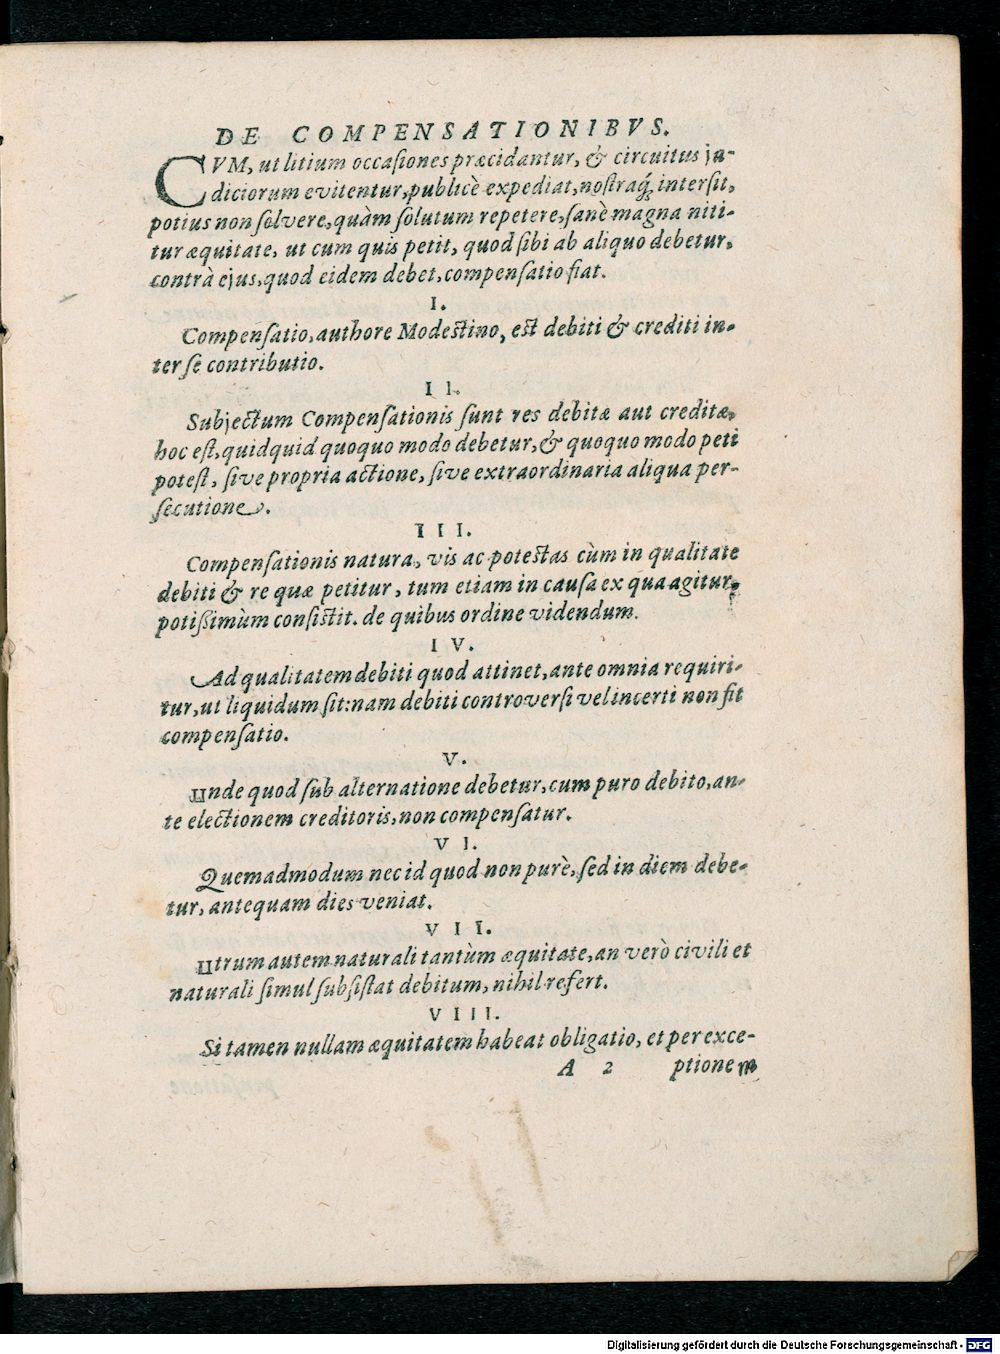 DE COMPENSATIONIBVS.
CVM, ut litium occaſiones præcidantur, & circuitus ju-
diciorum evitentur, publicè expediat, noſtraq́; interſit,
potius non ſolvere, quàm ſolutum repetere, ſanè magna niti-
tur æquitate, ut cum quis petit, quod ſibi ab aliquo debetur,
contrà ejus, quod eidem debet, compenſatio fiat.
I.
Compenſatio, authore Modeſtino, eſt debiti & crediti in-
ter ſe contributio.
II.
Subjectum Compenſationis ſunt res debitæ aut creditæ,
hoc eſt, quidquid quoquo modo debetur, & quoquo modo peti
poteſt, ſive propria actione, ſive extraordinaria aliqua per-
ſecutione.
III.
Compenſationis natura, vis ac poteſtas cùm in qualitate
debiti & re quæ petitur, tum etiam in cauſa ex qua agitur,
potiſsimùm conſiſtit. de quibus ordine videndum.
IV.
Ad qualitatem debiti quod attinet, ante omnia requiri-
tur, ut liquidum ſit: nam debiti controverſi vel incerti non fit
compenſatio.
V.
Unde quod ſub alternatione debetur, cum puro debito, an-
te electionem creditoris, non compenſatur.
VI.
Quemadmodum nec id quod non purè, ſed in diem debe-
tur, antequam dies veniat.
VII.
Utrum autem naturali tantùm æquitate, an verò civili et
naturali ſimul ſubſiſtat debitum, nihil refert.
VIII.
Si tamen nullam æquitatem habeat obligatio, et per exce-
A 2 ptionem
Digitalisierung gefördert durch die Deutsche Forschungsgemeinschaft - DFG